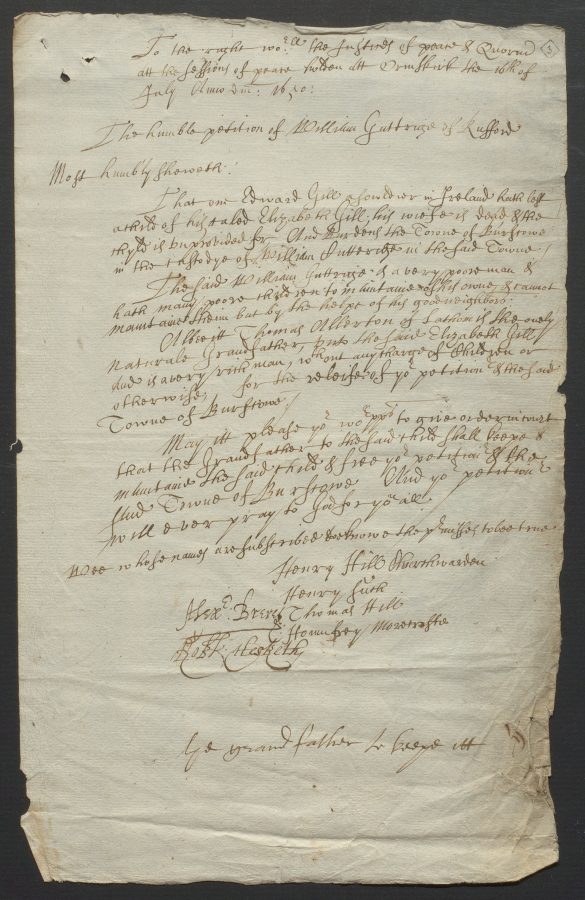 3
To the right wor:ll the Justices of peace & Quorum
att the sessions of peace holden att Ormskirk the 16th of
July Anno dni: 1650:
The humble petition of William Guttridge of Rufford
Most humbly sheweth:
That one Edward Gill a souldier in Ireland hath left
a child of his caled Elizabeth Gill, his wiefe is dead & the
child is unprovided for And burdens the Towne of Burscowe
in the custodye of William Gutteridge in the said Towne /
The said William Guttridge is a very poore man &
hath many poore children to maintaine of his owne, & cannot
maintaine them but by the helpe of his good neighbors
Albeitt Thomas Allerton of Lathom is the onely
naturale Grandfather unto the said Elizabeth Gill
And is a very rich man, without any charge of Children or
otherwise, for the releife of yor petitionr & the said
Towne of Burscowe /
May itt please yor worpps to give order in court
that the Grandfather to the said child shall keepe &
maintaine the said child & free yor petitionr & the
said Towne of Burscowe And yor petitionr
will ever pray to God for you all
Wee whose names are subscribed doe knowe the premisses to bee true
Henry Hill Churchwarden
Henry
Alexr: Breres Thomas Hill
Homfrey Morecrofte
Robt: Hesketh
Ye grand father to keepe itt